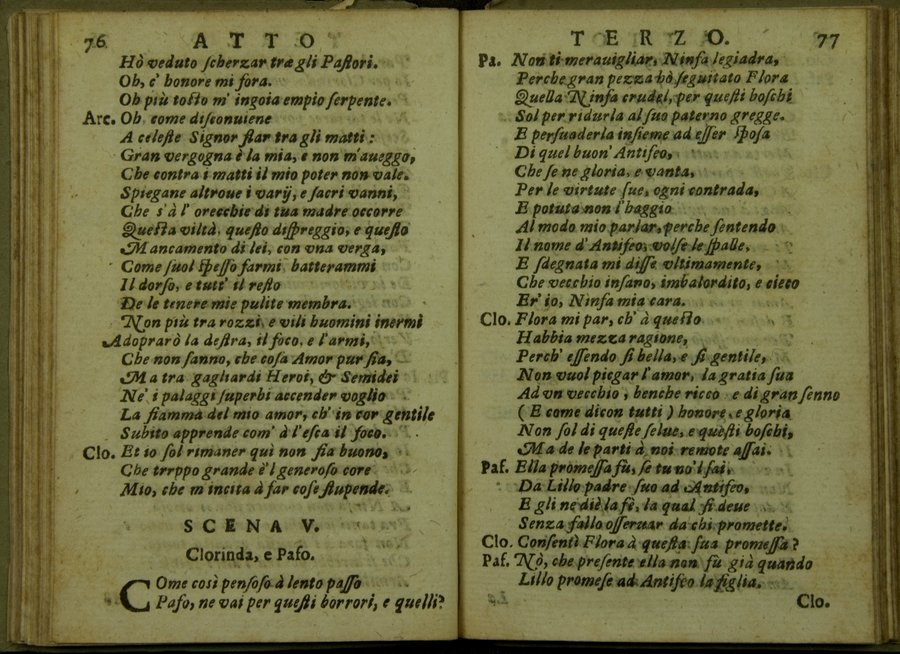 76 ATTO
Hò veduto scherzar tra gli Pastori.
Oh, c' honore mi fora.
Oh più tosto m' ingoia empio serpente.
Arc. Oh come disconuiene
A celeste Signor star tra gli matti:
Gran vergogna è la mia, e non m'aueggo,
Che contra i matti il mio poter non vale.
Spiegane altroue i varij, e sacri vanni,
Che s'à l' orecchie di tua madre occorre
Questa viltà, questo dispreggio, e questo
Mancamento di lei, con vna verga,
Come suol spesso farmi, batterammi
Il dorso, e tutt' il resto
De le tenere mie pulite membra.
Non più tra rozzi, e vili huomini inermi
Adoprarò la destra, il foco, e l'armi,
Che non sanno, che cosa Amor pur sia,
Ma tra gagliardi Heroi, & Semidei
Ne' i palaggi superbi accender voglio
La fiamma del mio amor, ch' in cor gentile
Subito apprende com' à l'esca il foco.
Clo. Et io sol rimaner quì non sia buono,
Che trrppo grande è'l generoso core
Mio, che m incita à far cose stupende.
SCENA V.
Clorinda, e Paso.
COme così pensoso à lento passo
Paso, ne vai per questi horrori, e quelli?
TERZO. 77
Pa. Non ti merauigliar, Ninfa legiadra,
Perche gran pezza hò seguitato Flora
Quella Ninfa crudel, per questi boschi
Sol per ridurla al suo paterno gregge.
E persuaderla insieme ad esser sposa
Di quel buon' Antifeo,
Che se ne gloria, e vanta,
Per le virtute sue, ogni contrada,
E potuta non l'haggio
Al modo mio parlar, perche sentendo
Il nome d' Antifeo, volse le spalle,
E sdegnata mi disse vltimamente,
Che vecchio insano, imbalordito, e cieco
Er' io, Ninfa mia cara.
Clo. Flora mi par, ch' à questo
Habbia mezza ragione,
Perch' essendo sì bella, e sì gentile,
Non vuol piegar l'amor, la gratia sua
Ad vn vecchio, benche ricco e di gran senno
(E come dicon tutti) honore, e gloria
Non sol di queste selue, e questi boschi,
Ma de le parti à noi remote assai.
Pas. Ella promessa fù, se tu no'l sai,
Da Lillo padre suo ad Antifeo,
E gli ne diè la fè, la qual si deue
Senza fallo osseruar da chi promette.
Clo. Consentì Flora à questa sua promessa?
Pas. Nò, che presente ella non fù già quando
Lillo promese ad Antifeo la figlia.
Clo.